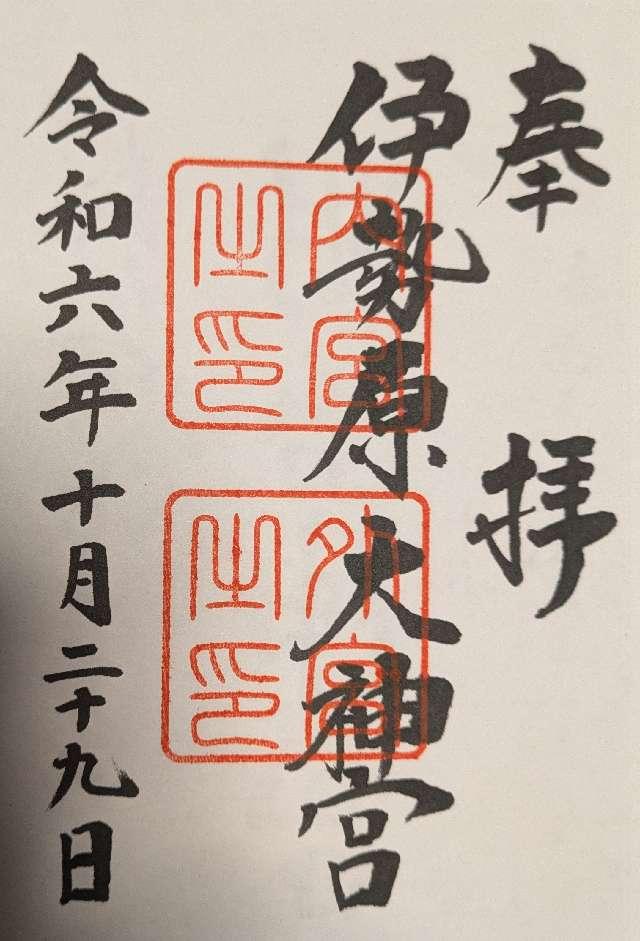 奉拝
伊勢原大神宮
内宮之印
外宮之印
令和六年十月二十九日